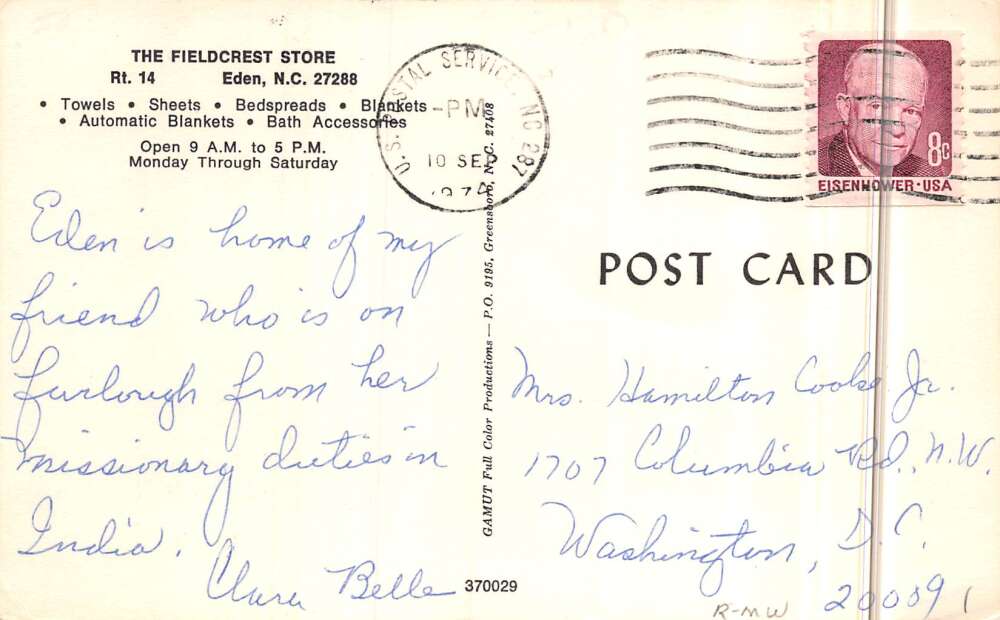 THE FIELDCREST STORE
Rt. 14 Eden, N.C. 27288
• Towels • Sheets • Bedspreads • Blankets
• Automatic Blankets • Bath Accessories
Open 9 A.M. to 5 P.M.
Monday Through Saturday
Eden is home of my
friend who is on
furlough from her
missionary duties in
India.
Clara Belle
GAMUT Full Color Productions — P.O. 9195, Greensboro, N.C. 27408
370029
U.S. POSTAL SERVICE, NC 287
PM
10 SEP
8c
EISENHOWER·USA
POST CARD
Mrs. Hamilton Cooke Jr.
1707 Columbia Rd., N.W.
Washington, D.C.
20009
R-MW